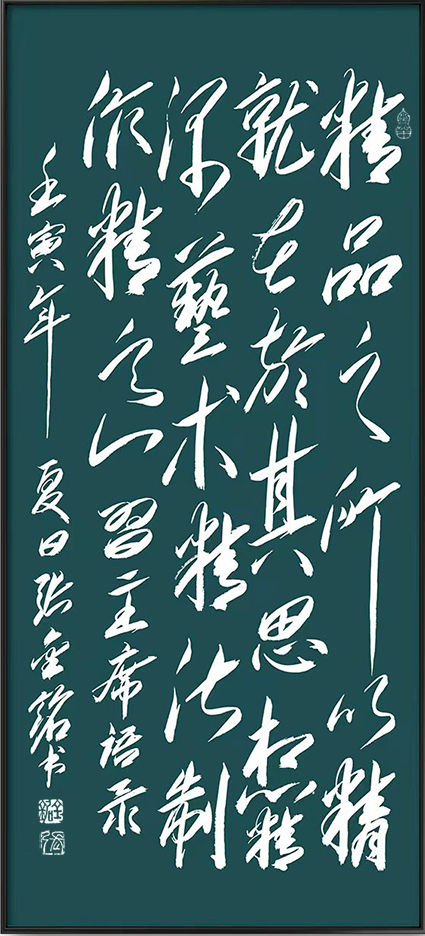 精品之所以精
就在於其思想精
深藝术精湛制
作精良 習主席语录
壬寅年 夏日张金铭书